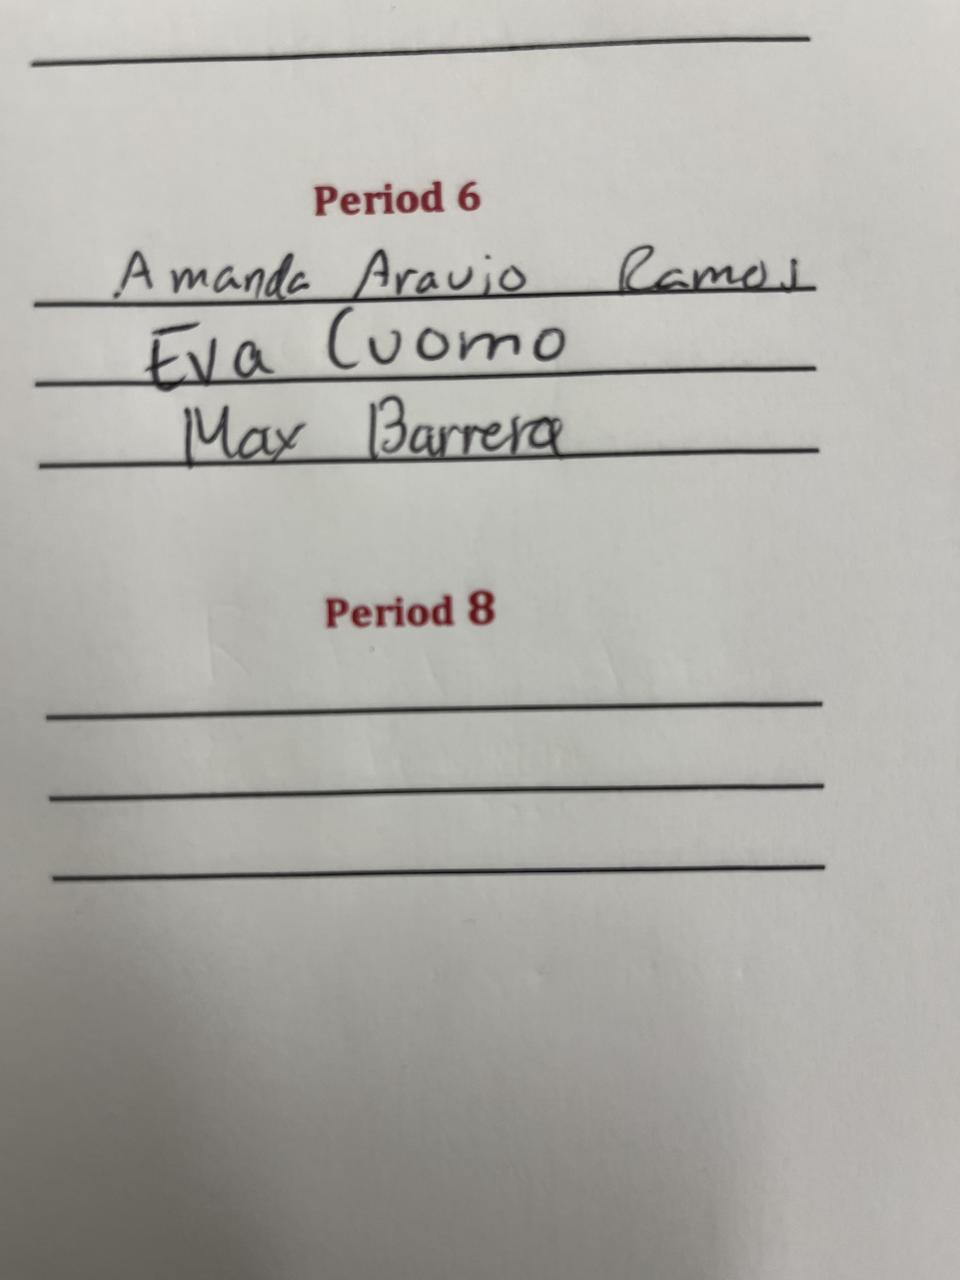 Period 6
Amanda Araujo Ramos
Eva Cuomo
Max Barrera
Period 8